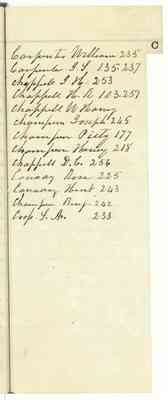 C
Carpenter William 235
Carpenter I. T. 135. 237
Chappell I. H. 253
Chappell H. A 103. 251
Chappell W Henry
Champion Joseph 245
Champion Piety 177
Champion Henry 218
Chappell D. C. 256
Conway Dora 225
Conway Hunt 243
Champion Benj 242
Coop 233